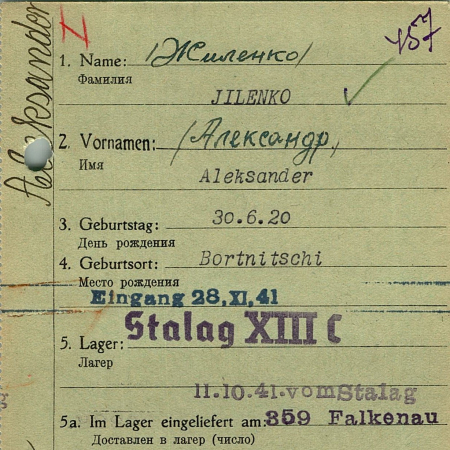 Aleksander
457
1. Name: /Жиленко/
Фамилия
JILENKO
2. Vornamen: /Александр,
Имя
Aleksander
3. Geburtstag: 30.6.20
День рождения
4. Geburtsort: Bortnitschi
Место рождения
Eingang 28.XI.41
5. Lager: Stalag XIII C
Лагер
11.10.41.vom Stalag
5a. Im Lager eingeliefert am: 359 Falkenau
Доставлен в лагер (число)